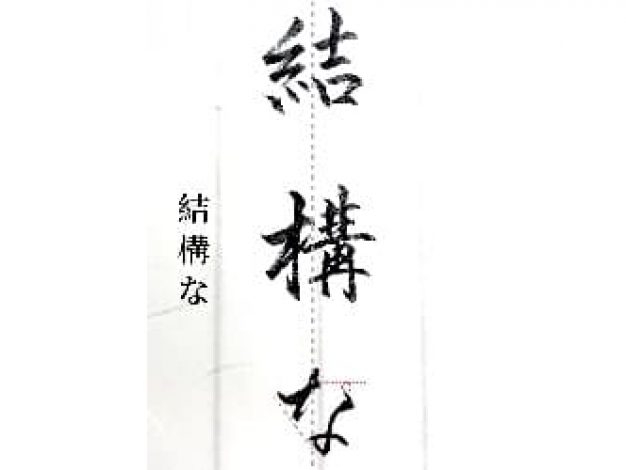 結構な
結構な